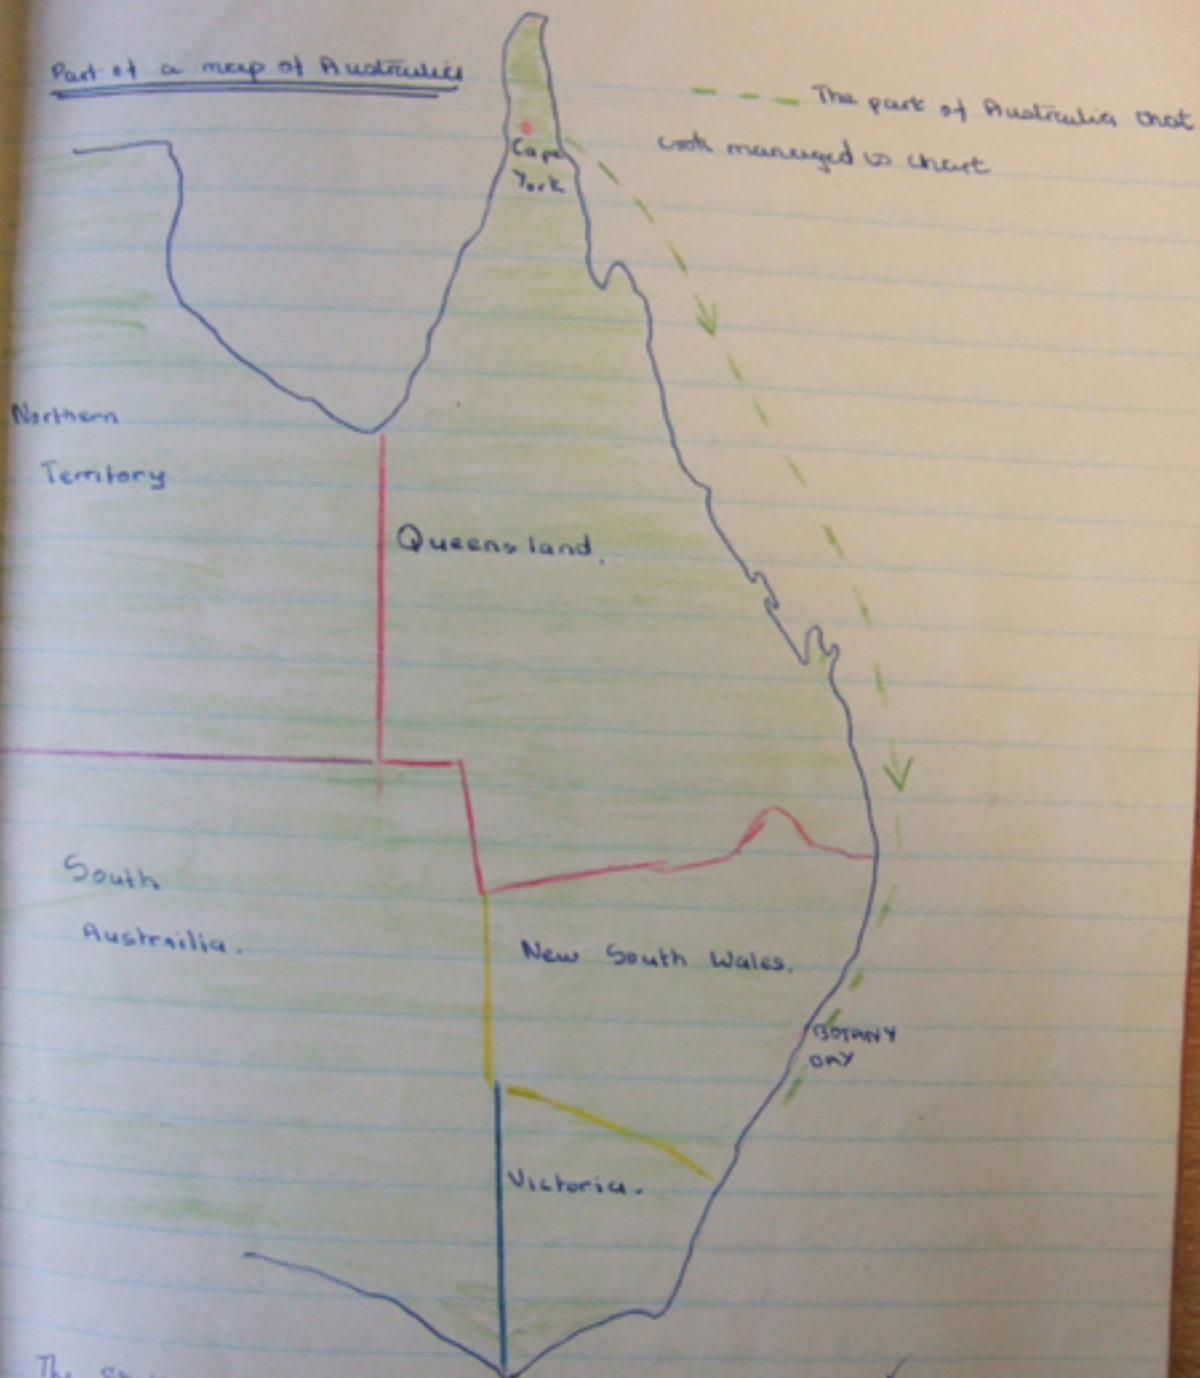 Part of a map of Australia
The part of Australia that
cook managed to chart
Cape
York
Northern
Territory
Queensland.
South
Austrailia.
New South Wales.
BOTANY
BAY
Victoria.
The